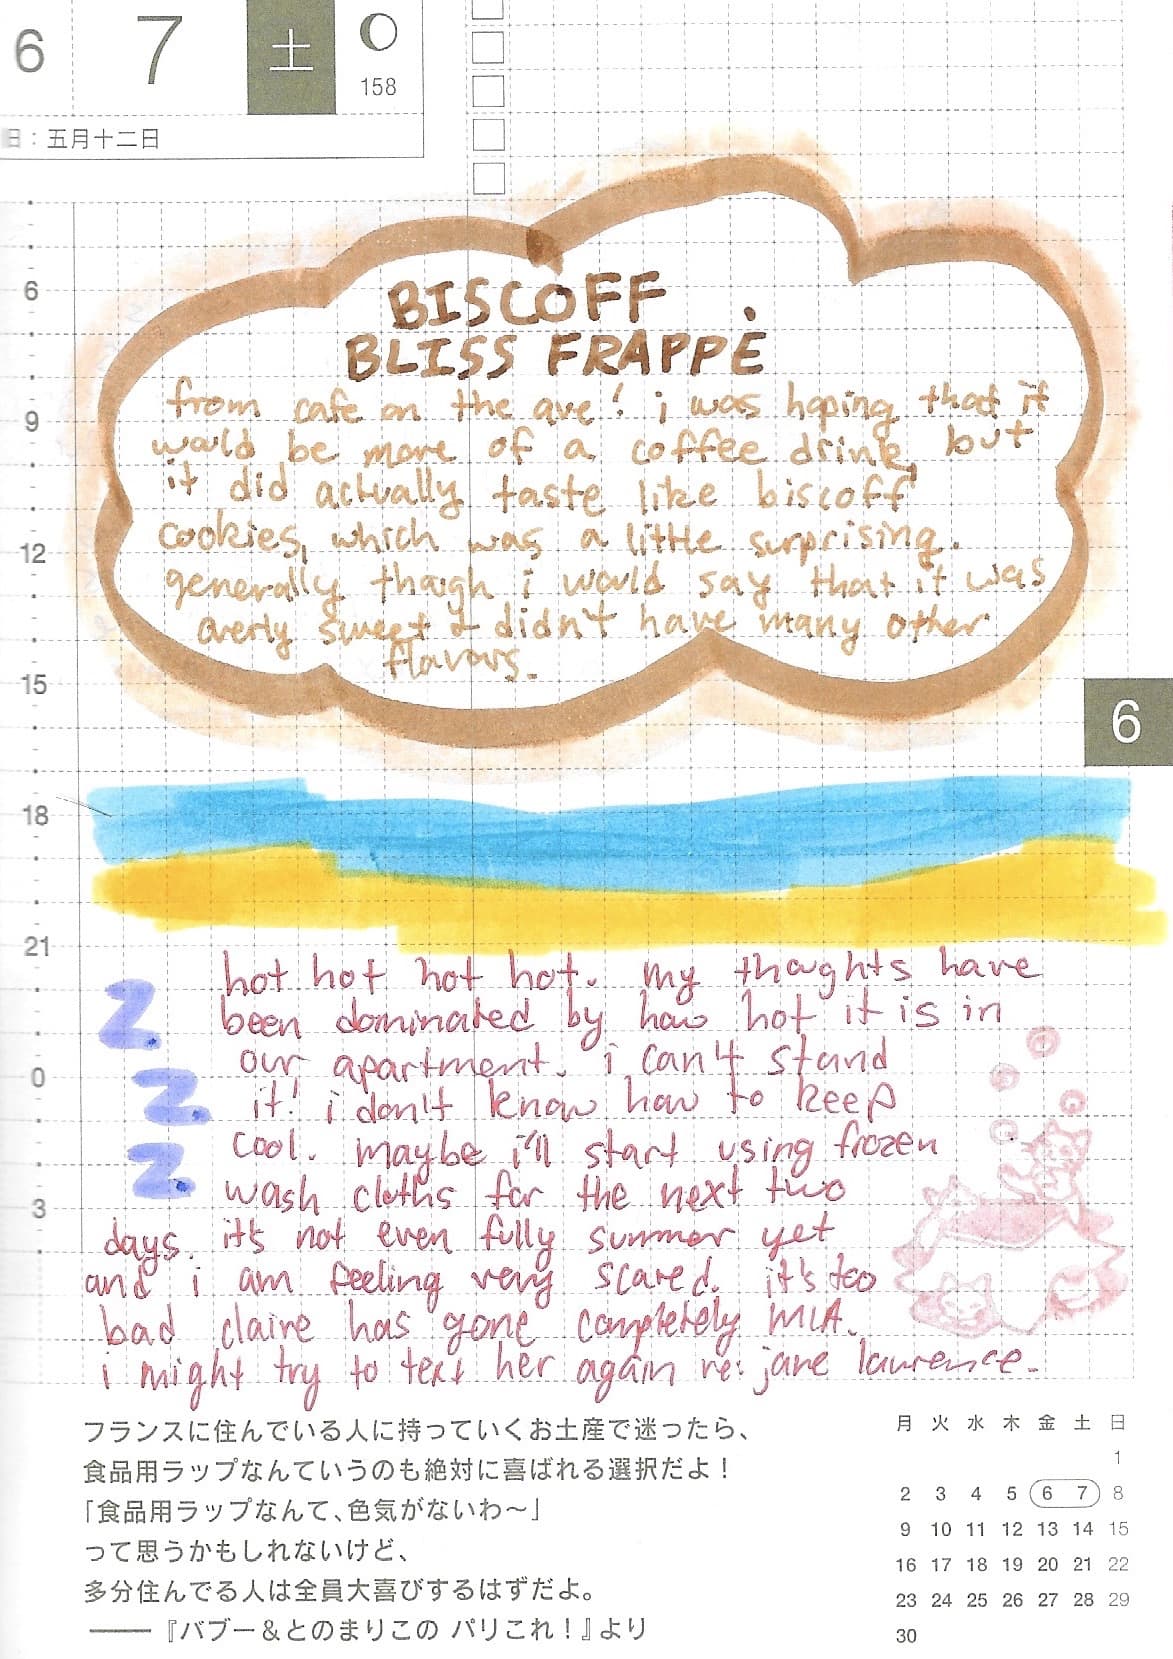 6 7 土
158
日：五月十二日
BISCOFF
BLISS FRAPPĖ
from cafe on the ave! i was hoping that it
would be more of a coffee drink, but
it did actually taste like biscoff
cookies, which was a little surprising.
generally though i would say that it was
overly sweet & didn't have many other
flavors.
6
9
12
15
6
18
21
hot hot hot hot. my thoughts have
been dominated by how hot it is in
our apartment. i can't stand
it! i don't know how to keep
cool. maybe i'll start using frozen
wash cloths for the next two
days. it's not even fully summer yet
and i am feeling very scared. it's too
bad claire has gone completely MIA.
i might try to text her again re: jane laurence.
Z.
Z.
Z.
0
3
フランスに住んでいる人に持っていくお土産で迷ったら、
食品用ラップなんていうのも絶対に喜ばれる選択だよ！
「食品用ラップなんて、色気がないわ〜」
って思うかもしれないけど、
多分住んでる人は全員大喜びするはずだよ。
――『バブー＆とのまりこの パリこれ！』より
月 火 水 木 金 土 日
1
2 3 4 5 6 7 8
9 10 11 12 13 14 15
16 17 18 19 20 21 22
23 24 25 26 27 28 29
30